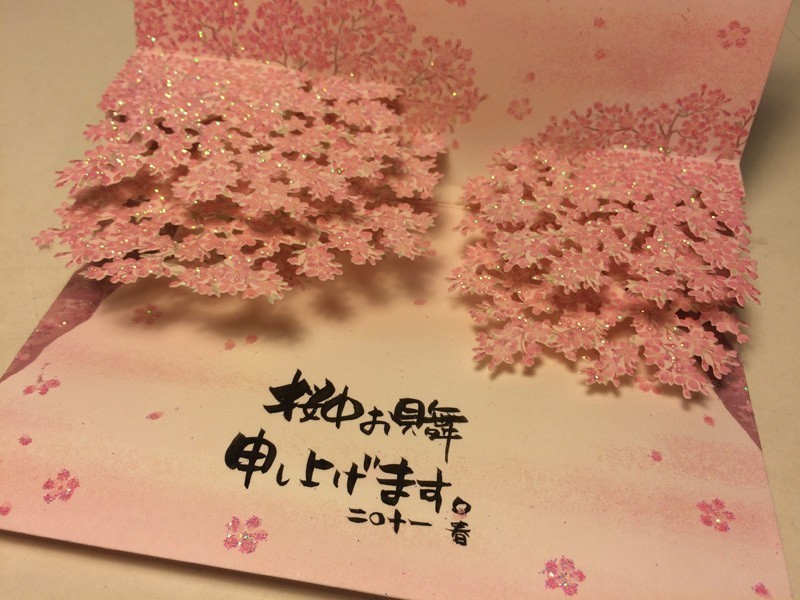 桜中お見舞
申し上げます。
二〇十一 春